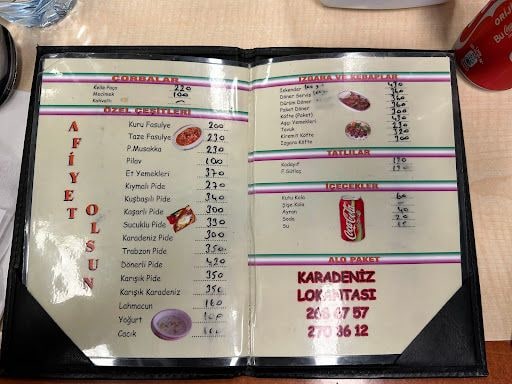 ÇORBALAR
Kelle Paça 220
Mecimek 100
Kahvaltı
ÖZEL ÇEŞİTLERİ
AFİYET OLSUN
Kuru Fasulye 200
Taze Fasulye 230
P.Musakka 230
Pilav 100
Et Yemekleri 370
Kıymalı Pide 270
Kuşbaşılı Pide 340
Kaşarlı Pide 300
Sucuklu Pide 390
Karadeniz Pide 300
Trabzon Pide 350
Dönerli Pide 420
Karışık Pide 350
Karışık Karadeniz 350
Lahmacun 160
Yoğurt 100
Cacık
IZGARA VE KEBAPLAR
İskender
Döner Servis
Dürüm Döner
Paket Döner
Köfte (Paket)
Aşçı Yemekleri
Tavuk
Kiremin Köfte
Izgara Köfte
TATLILAR
Kadayıf 130
F.Sütlaç 130
İÇECEKLER
Kutu Kola 60
Şişe Kola
Ayran 40
Soda 20
Su
Coca-Cola
ALO PAKET
KARADENİZ
LOKANTASI
268 67 57
270 36 12